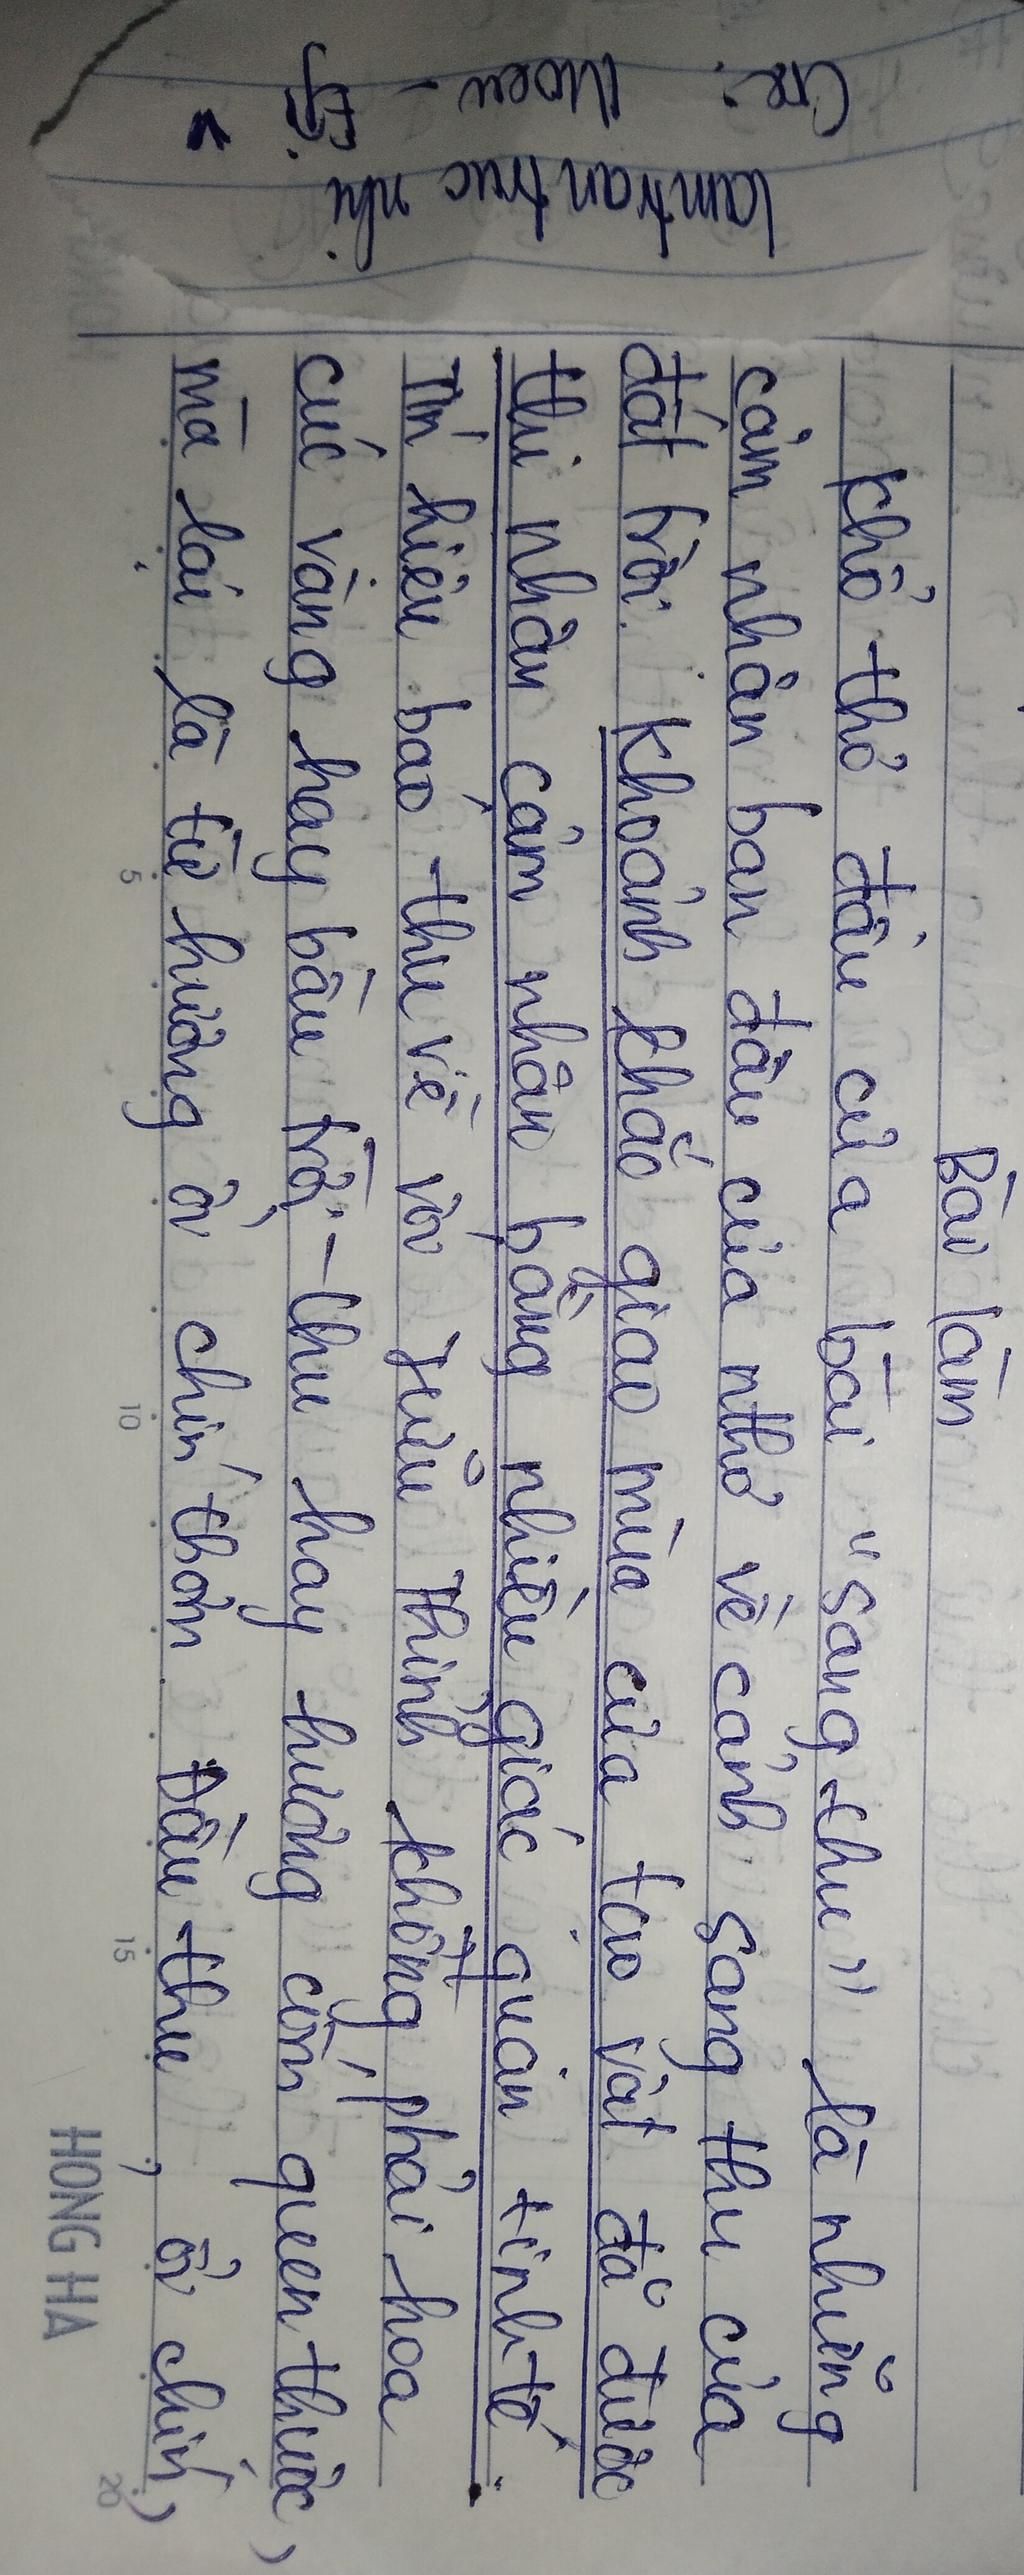 Cre: Moew - Epi
lamtrantruc nhi
Bài làm
Khổ thơ đầu của bài "sang thu" là những
cảm nhận ban đầu của nthơ về cảnh sang thu của
đất trời. Khoảnh khắc giao mùa của tạo vật đã được
thi nhân cảm nhận bằng nhiều giác quan tinh tế.
Tín hiệu báo thu về với Hữu Thỉnh không phải hoa
cúc vàng hay bầu trời thu hay hương cốm quen thuộc,
mà lại là từ hương ổi chín thơm. Đầu thu, ổi chín,
5
10
15
20
HONG HA